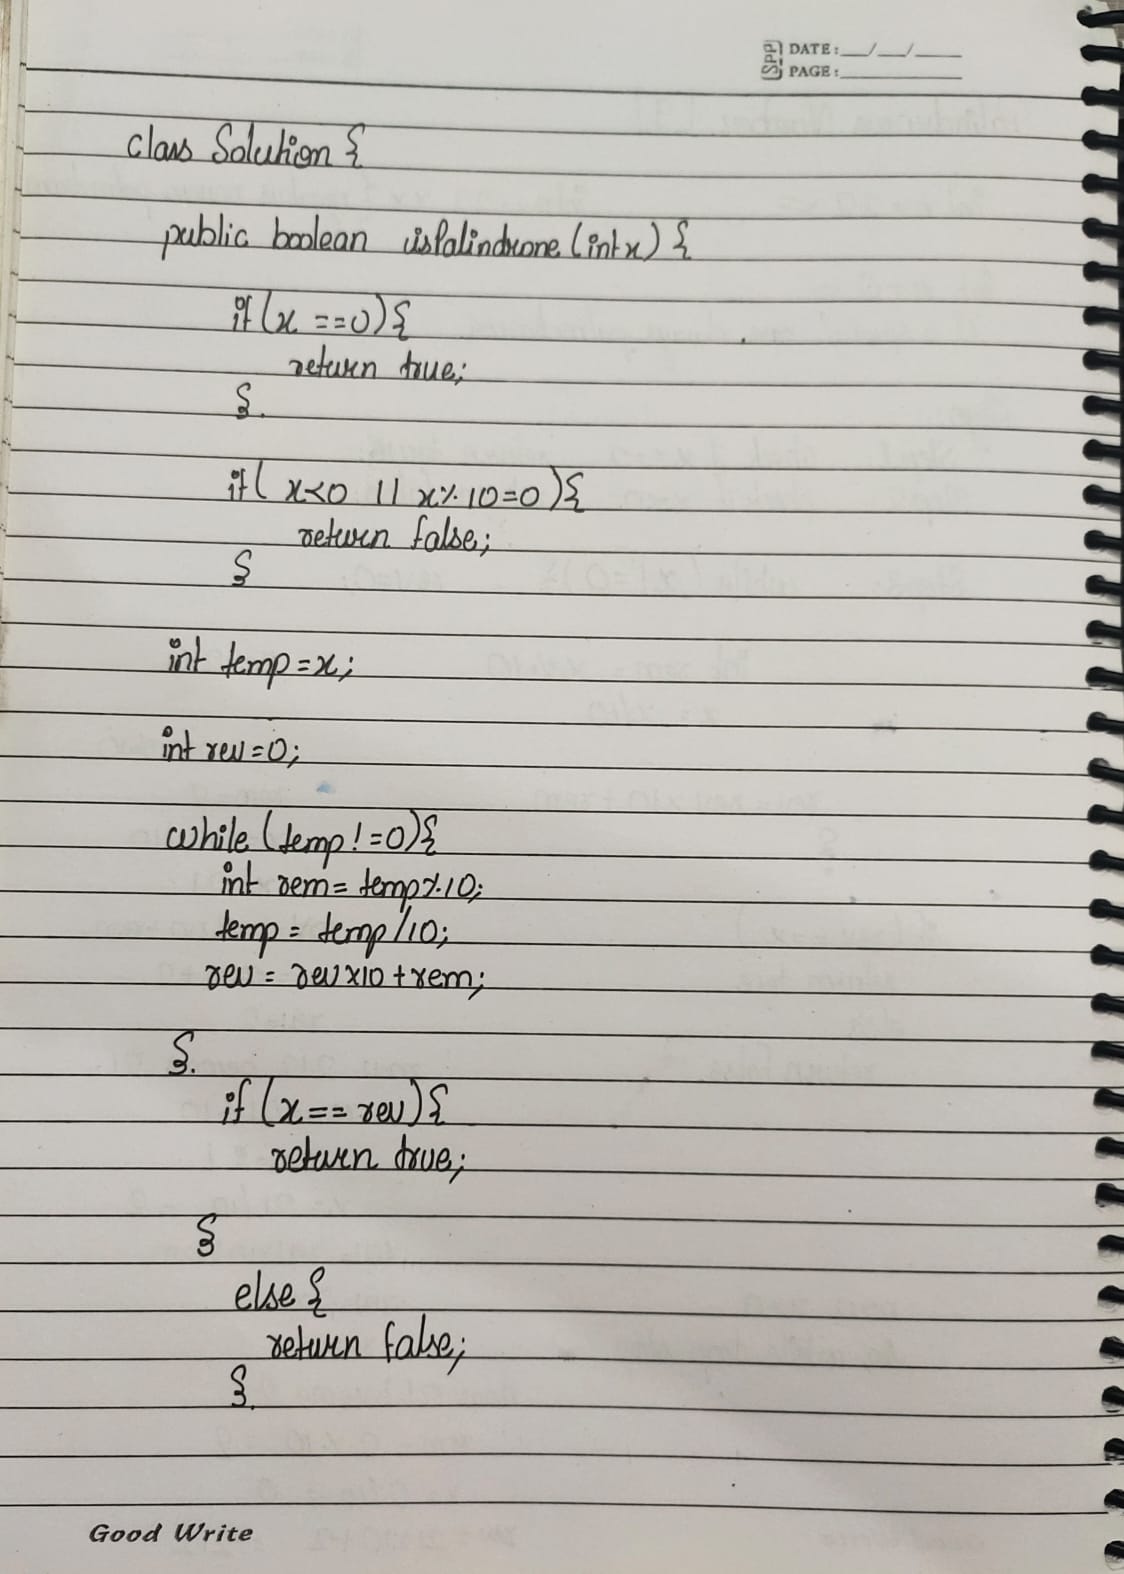 SPP DATE: __/__/____
PAGE: ________
class Solution {
public boolean isPalindrone (int x) {
if (x ==0) {
return true;
}.
if ( x<0 || x%10=0) {
return false;
}
int temp = x;
int rev = 0;
while (temp != 0) {
int rem = temp%10;
temp = temp/10;
rev = rev x10 + rem;
}.
if (x == rev) {
return true;
}
else {
return false;
}.
Good Write